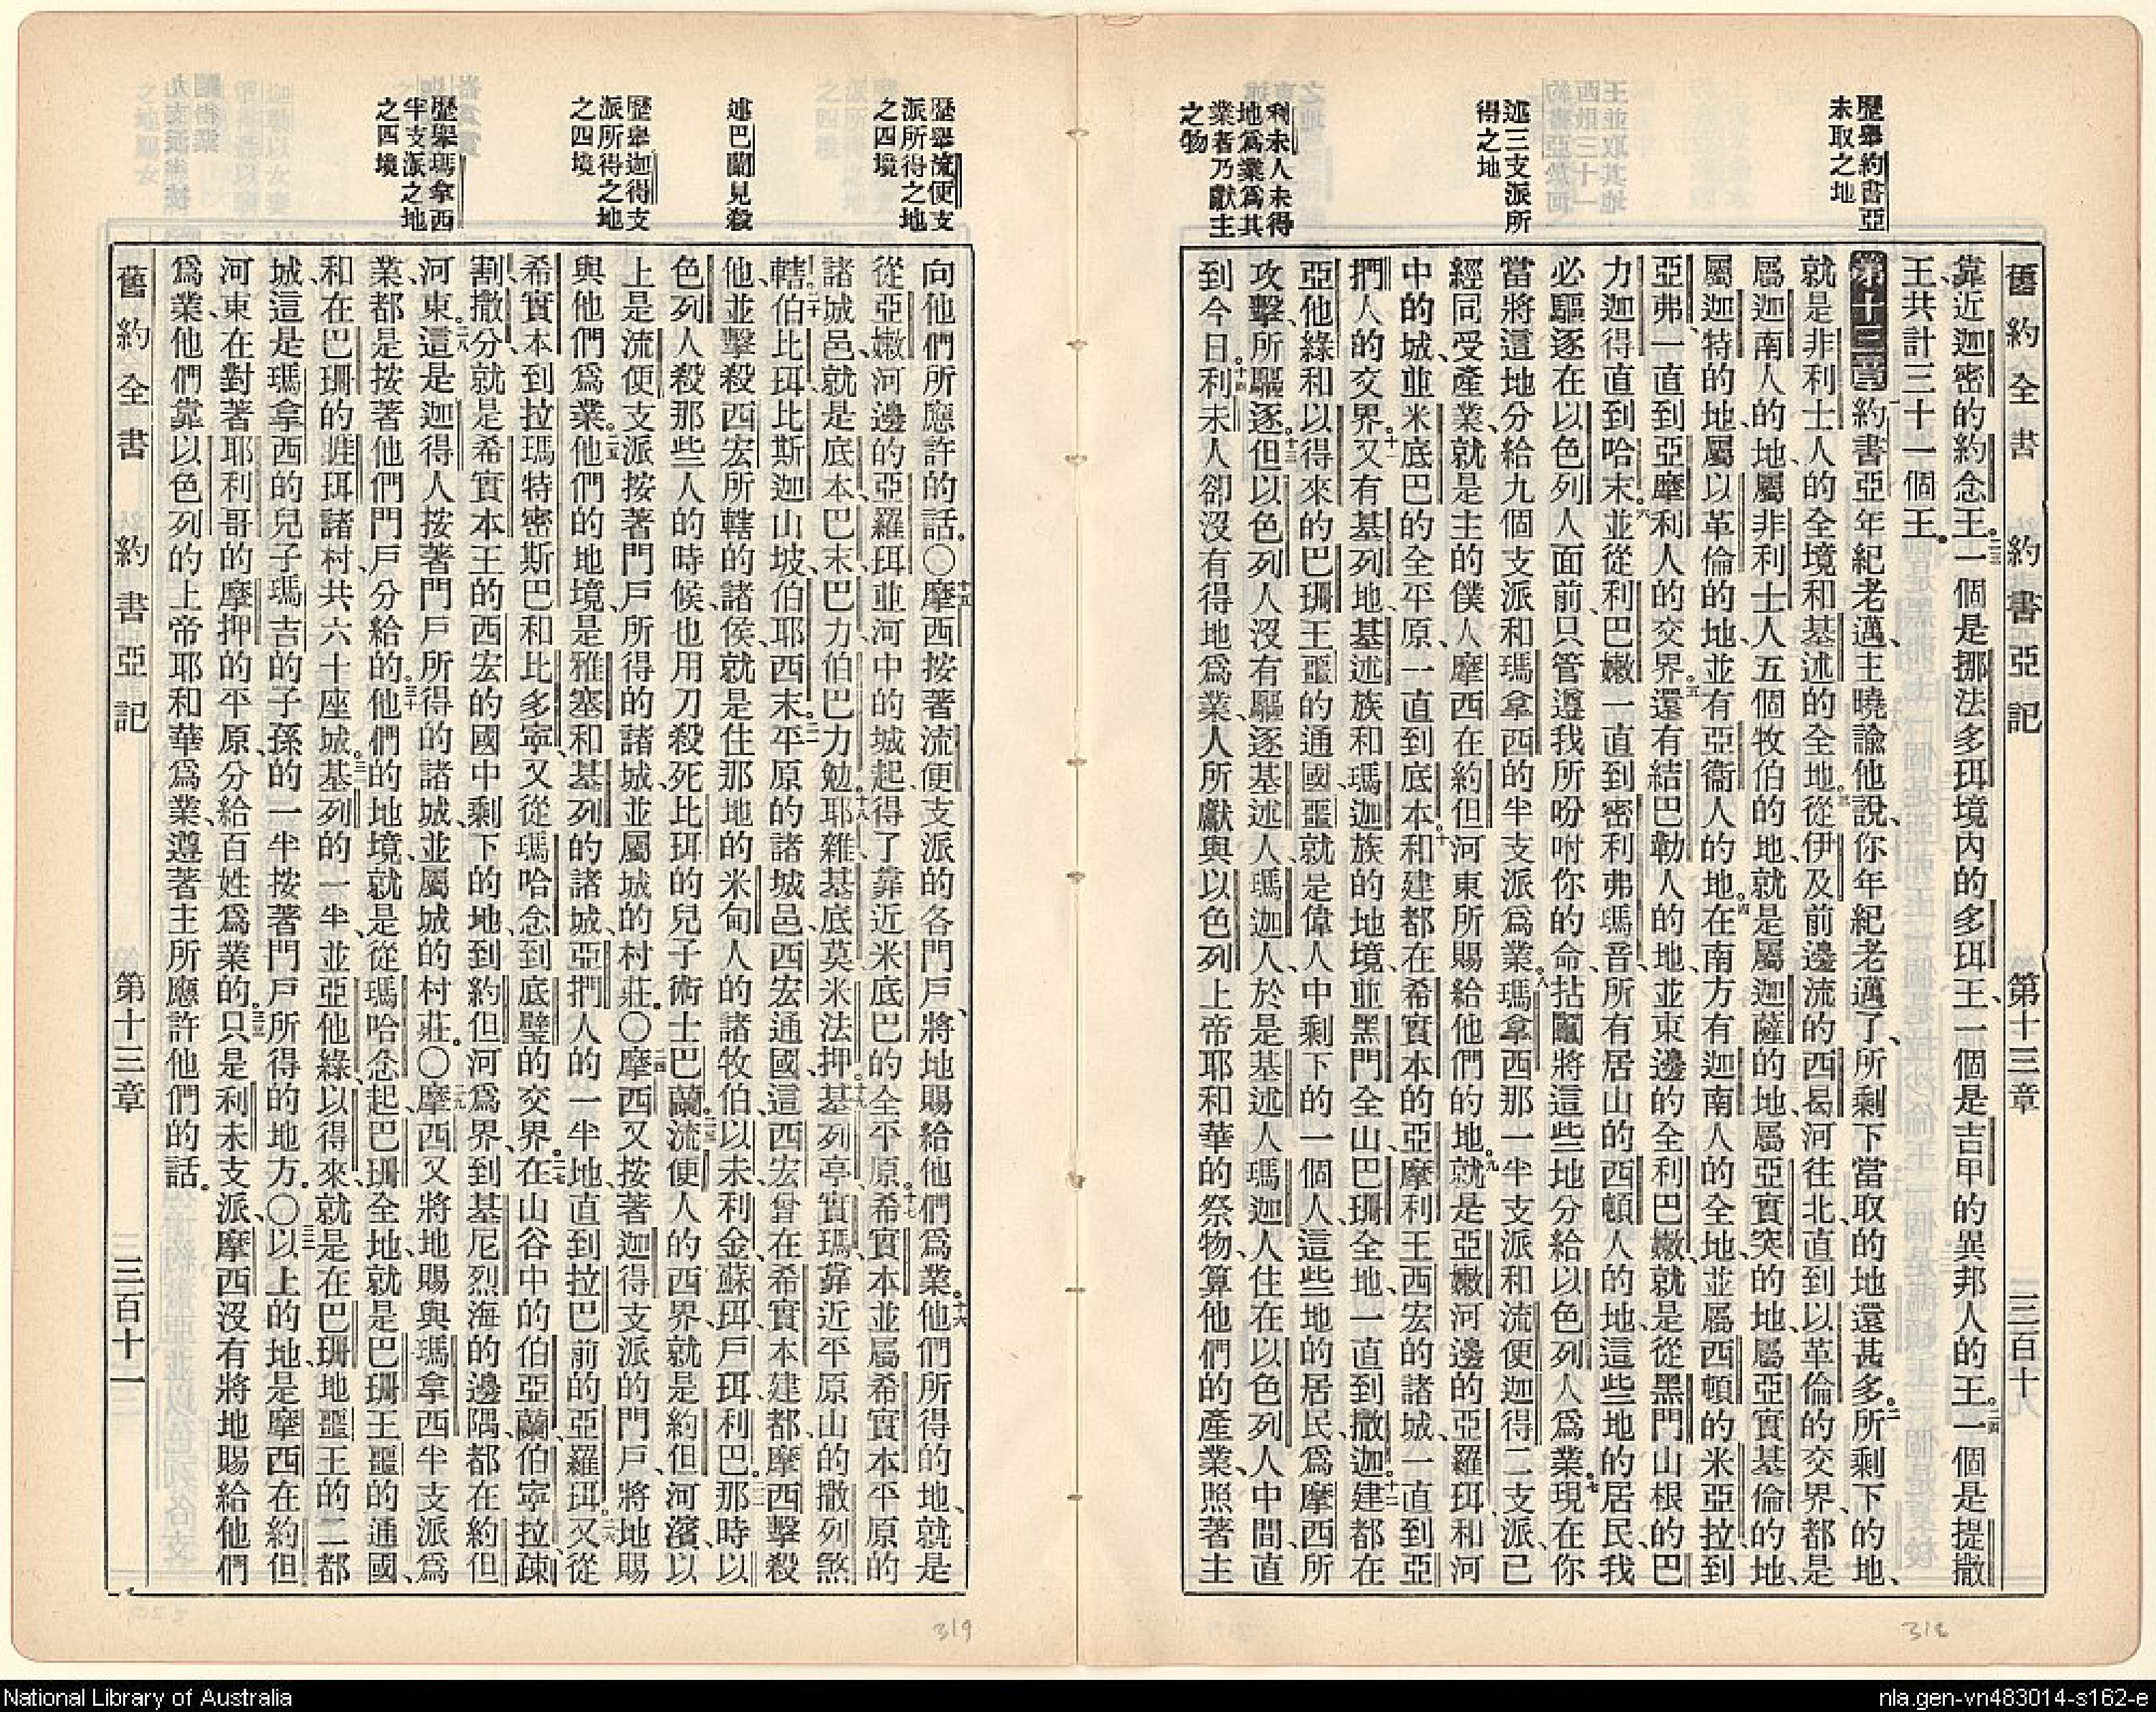 歷舉約書亞
未取之地
述三支派所
得之地
利未人未得
地爲業爲其
業者乃獻主
之物
舊約全書　約書亞記　第十三章　三百十
靠近迦密的約念王。二三一個是挪法多珥境內的多珥王、一個是吉甲的異邦人的王。二四一個是提撒
王共計三十一個王。
第十三章一約書亞年紀老邁、主曉諭他說、你年紀老邁了、所剩下當取的地還甚多。二所剩下的地、
就是非利士人的全境和基述的全地。三從伊及前邊流的西曷河往北、直到以革倫的交界、都是
屬迦南人的地、屬非利士人五個牧伯的地、就是屬迦薩的地、屬亞實突的地、屬亞實基倫的地、
屬迦特的地、屬以革倫的地、並有亞衞人的地。四在南方有迦南人的全地、並屬西頓的米亞拉到
亞弗、一直到亞摩利人的交界。五還有結巴勒人的地、並東邊的全利巴嫩、就是從黑門山根的巴
力迦得直到哈末。六並從利巴嫩一直到密利弗瑪音、所有居山的西頓人的地、這些地的居民、我
必驅逐在以色列人面前、只管遵我所吩咐你的命、拈鬮將這些地分給以色列人爲業。七現在你
當將這地分給九個支派和瑪拿西的半支派爲業。八瑪拿西那一半支派和流便迦得二支派、已
經同受產業、就是主的僕人摩西在約但河東所賜給他們的地。九就是亞嫩河邊的亞羅珥、和河
中的城、並米底巴的全平原、一直到底本。十和建都在希實本的亞摩利王西宏的諸城、一直到亞
捫人的交界。十一又有基列地、基述族和瑪迦族的地境、並黑門全山、巴珊全地、一直到撒迦。十二建都在
亞他綠和以得來的巴珊王噩的通國、噩就是偉人中剩下的一個人、這些地的居民、爲摩西所
攻擊、所驅逐。十三但以色列人沒有驅逐基述人、瑪迦人、於是基述人瑪迦人住在以色列人中間、直
到今日。十四利未人卻沒有得地爲業、人所獻與以色列上帝耶和華的祭物、算他們的產業、照著主
318
歷舉流便支
派所得之地
之四境
述巴蘭見殺
歷舉迦得支
派所得之地
之四境
歷舉瑪拿西
半支派之地
之四境
向他們所應許的話。〇十五摩西按著流便支派的各門戶、將地賜給他們爲業。十六他們所得的地、就是
從亞嫩河邊的亞羅珥並河中的城起、得了靠近米底巴的全平原。十七希實本並屬希實本平原的
諸城邑、就是底本、巴末巴力、伯巴力勉。十八耶雜、基底莫、米法押。十九基列亭、實瑪、靠近平原山的撒列煞
轄。二十伯比珥、比斯迦山坡、伯耶西末。二一平原的諸城邑、西宏通國、這西宏曾在希實本建都、摩西擊殺
他、並擊殺西宏所轄的諸侯、就是住那地的米甸人的諸牧伯、以未、利金、蘇珥、戶珥、利巴。二二那時以
色列人殺那些人的時候、也用刀殺死比珥的兒子術士巴蘭。二三流便人的西界、就是約但河濱、以
上是流便支派按著門戶所得的諸城、並屬城的村莊。〇二四摩西又按著迦得支派的門戶、將地賜
與他們爲業。二五他們的地境、是雅塞和基列的諸城、亞捫人的一半地、直到拉巴前的亞羅珥。二六又從
希實本到拉瑪特密斯巴、和比多寧、又從瑪哈念到底璧的交界。二七在山谷中的伯亞蘭、伯寧拉、疎
割、撒分、就是希實本王的西宏的國中剩下的地、到約但河爲界、到基尼烈海的邊隅、都在約但
河東。二八這是迦得人按著門戶所得的諸城、並屬城的村莊。〇二九摩西又將地賜與瑪拿西半支派爲
業、都是按著他們門戶分給的。三十他們的地境、就是從瑪哈念起、巴珊全地、就是巴珊王噩的通國、
和在巴珊的睚珥諸村、共六十座城。三一基列的一半、並亞他綠、以得來、就是在巴珊地噩王的二都
城、這是瑪拿西的兒子瑪吉的子孫的一半、按著門戶所得的地方。〇三二以上的地、是摩西在約但
河東在對著耶利哥的摩押的平原、分給百姓爲業的。三三只是利未支派、摩西沒有將地賜給他們
爲業、他們靠以色列的上帝耶和華爲業、遵著主所應許他們的話。
舊約全書　約書亞記　第十三章　三百十一
319
National Library of Australia
nla.gen-vn483014-s162-e